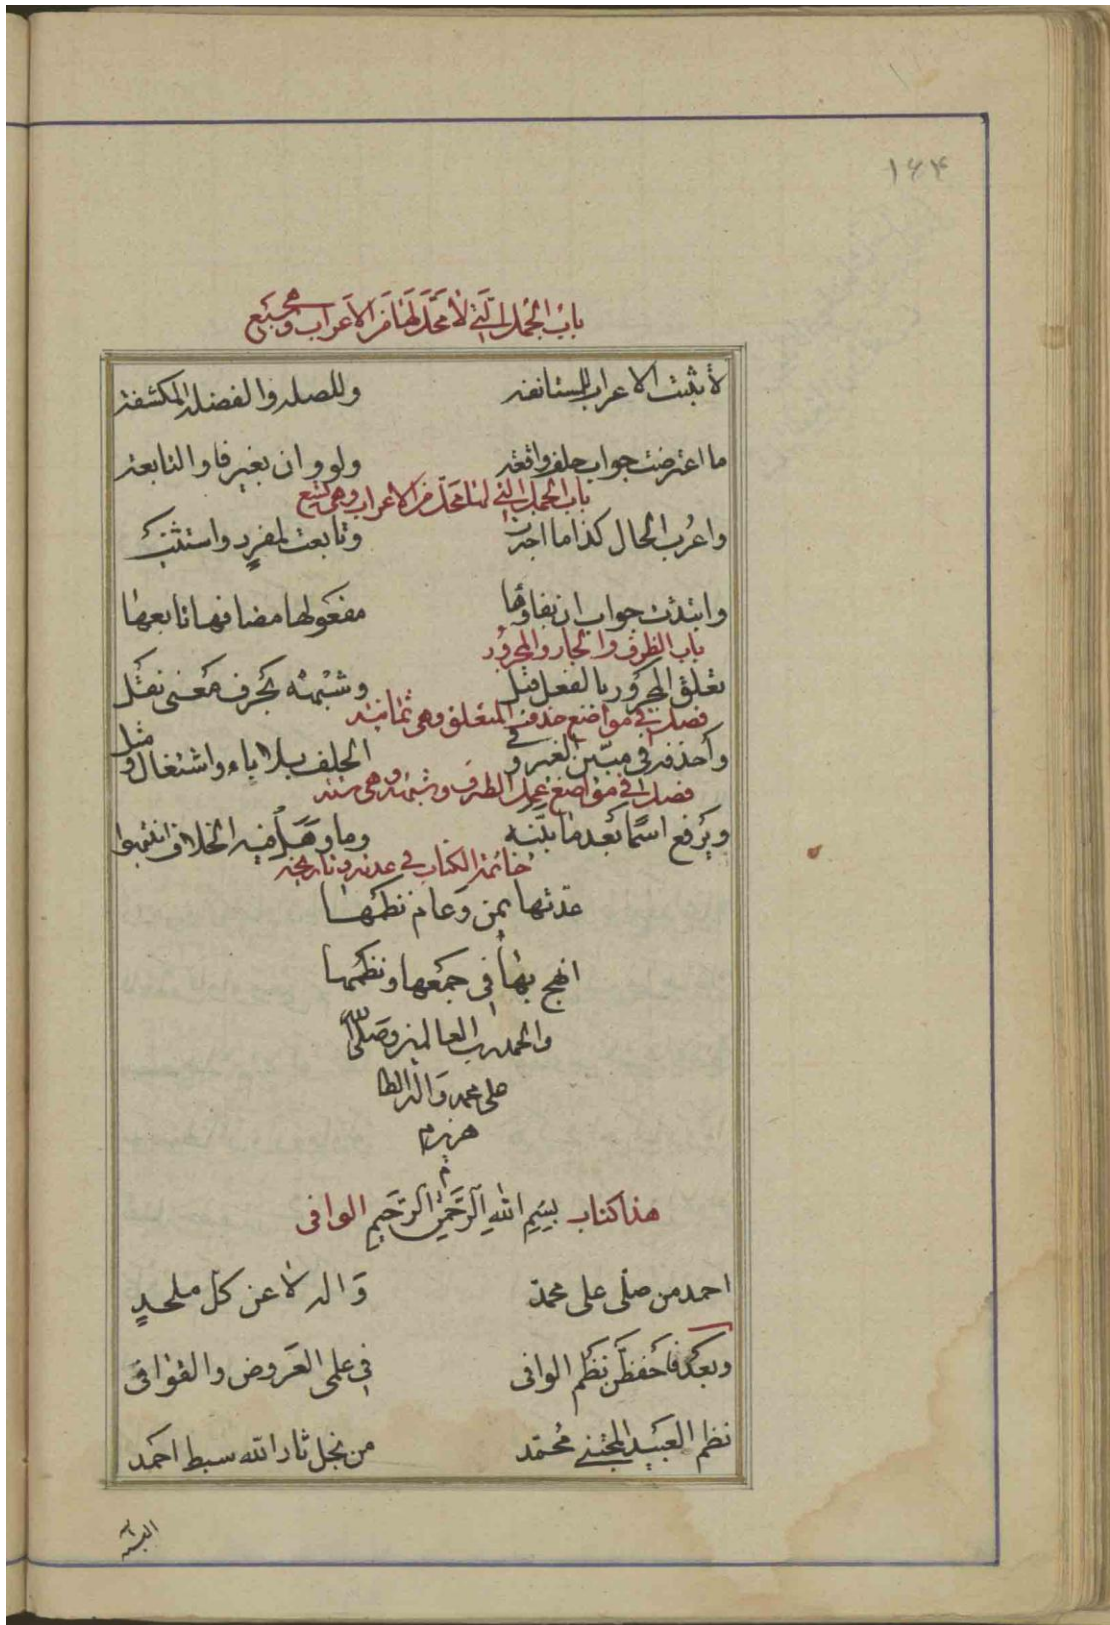 ۱۶۴
باب الجمل التي لا محل لها من الاعراب وهي سبع
لا تثبت الاعراب للمستانفه وللصله والفضله المكشفة
ما اعترضت جواب حلف واقعة ولو وان بغير فا والتابعة
باب الجمل التي لها محل من الاعراب وهي تسع
واعرب الحال كذا ما اخبرت وتابعت لمفرد واستثنيت
وابتدئت جواب ان بفاوها مفعولها مضافها تابعها
باب الظرف والجار والمجرور
تعلق المجرور بالفعل قبل وشبهه بحرف معنى نقل
فصل في مواضع حذف المتعلق وهي ثمانية
واحذفه في مبين الغير وفي الحلف بلا باء واشتغال ومثل
فصل في مواضع عمل الظرف وشبهه وهي ستة
ويرفع اسما بعد ما بينه وما وهل فيه الخلاف انتبهوا
خاتمة الكتاب في عدته وتاريخه
عدتها يمن وعام نظمها
انهج بها في جمعها ونظمها
والحمد رب العالمين وصلى الله
على محمد واله الطا
هرين م
م
هذا كتاب بِسْمِ اللهِ الرَّحْمٰنِ الرَّحيمِ الوافى
احمد من صلى على محمد وَاله لاعن كل ملحدٍ
وبعد فاحفظن نظم الوافى فى علمى العَروض والقوافى
نظم العبيد المجتبى محمّد من نجل ثار الله سبط احمد